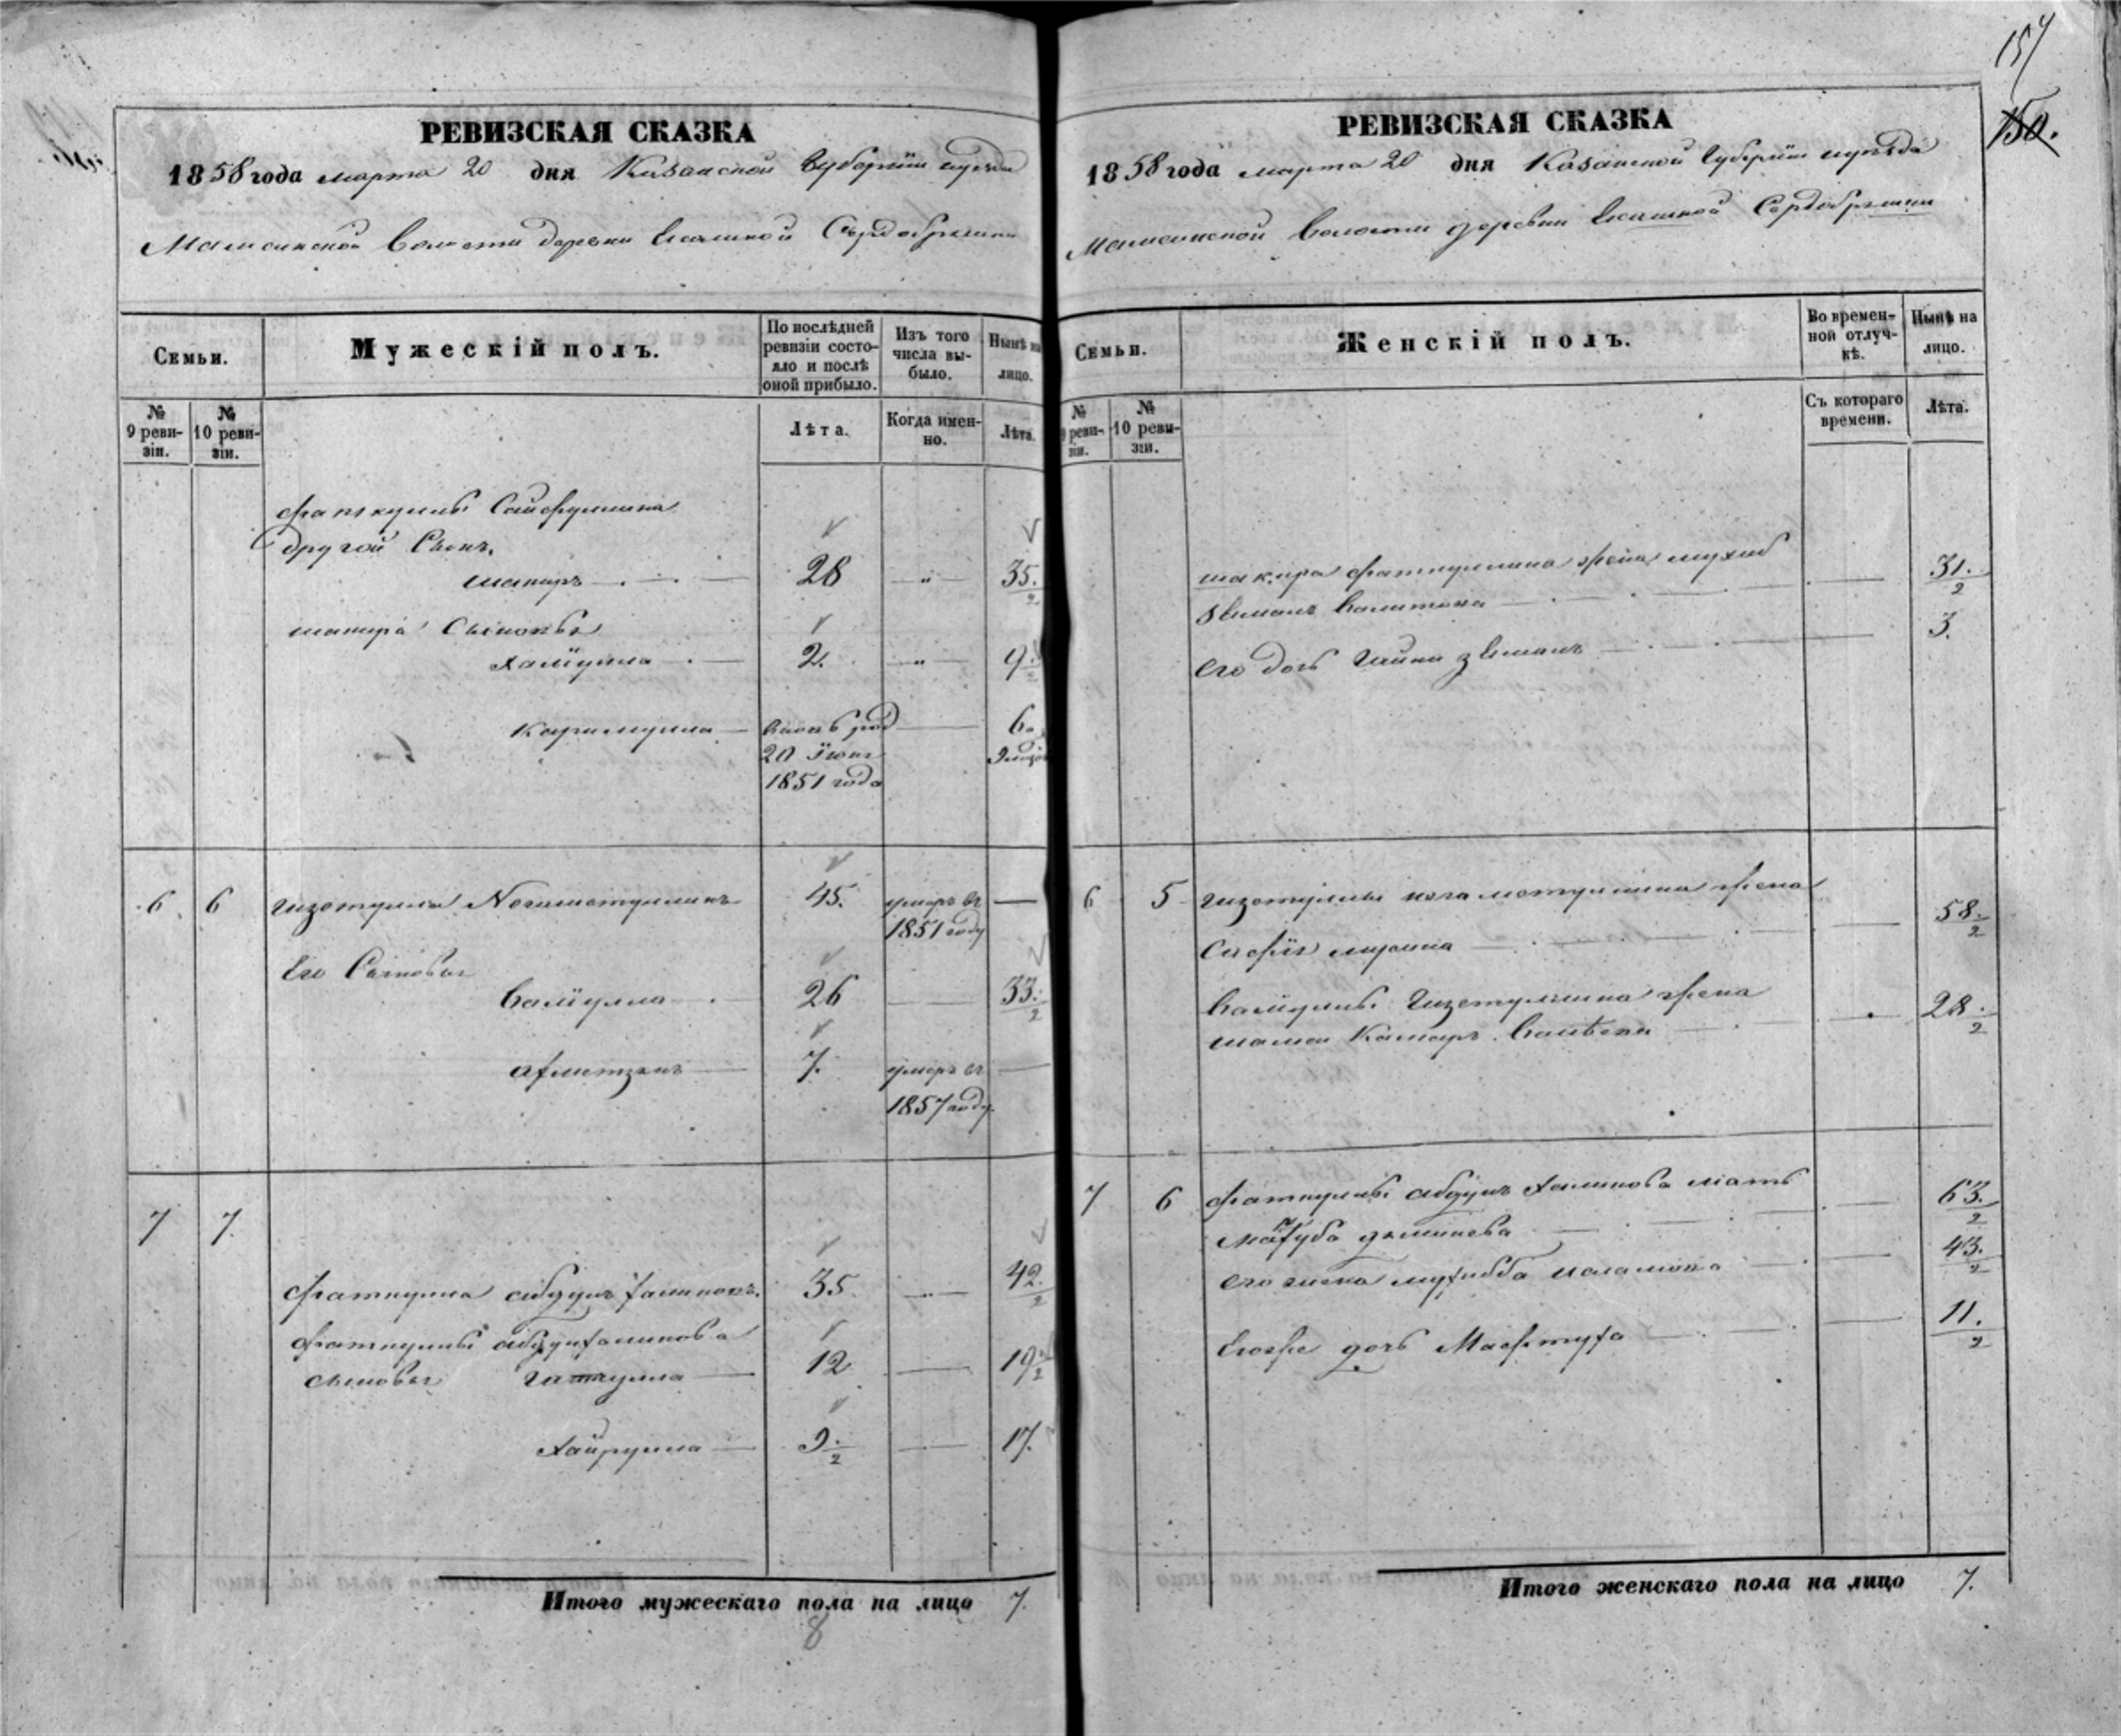 157
150.
РЕВИЗСКАЯ СКАЗКА
1858 года марта 20 дня Казанской Губернии и уезда
Мамсинской Волости деревни Сердобряшки
Семьи.
Мужескій полъ.
По послѣдней ревизіи состо-
яло и послѣ
оной прибыло.
Изъ того
числа вы-
было.
Нынѣ на
лицо.
№
9 реви-
зіи.
№
10 реви-
зіи.
Лѣта.
Когда имен-
но.
Лѣта.
Фаткуллы Сайфуллина
другой Сынъ.
Шакиръ 28 " 35. 2
Шакира Сыновья
Халиулла 2. " 9. 2
Каримулла вновь род 6.
20 Июня 9 
1851 года
6. 6 Гизетулла Негаметуллинъ 45. умеръ въ —
1851 году
Его Сыновья
Валиулла 26 — 33. 2
Ахметзянъ 7. умеръ въ —
1857 году.
7 7. Фаткулла Абдулъ Халиковъ. 35 — 42. 2
Фаткуллы Абдулхаликова
сыновья улла 12 — 19 2
Хайрулла 9. 2 — 17.
Итого мужескаго пола на лицо 7.
8
РЕВИЗСКАЯ СКАЗКА
1858 года марта 20 дня Казанской Губернии и уезда
Мамсинской Волости деревни Сердобряшки
Семьи.
Женскій полъ.
Во времен-
ной отлуч-
кѣ.
Нынѣ на
лицо.
№
9 реви-
зіи.
№
10 реви-
зіи.
Съ котораго
времени.
Лѣта.
Шакира Фаткуллина жена 31. 2
Валитова
его дочь 3.
6 5 Гизетуллы Негаметуллина жена 58. 2
Валиуллы Гизетуллина жена 28. 2
Шамси Камаръ
7 6 Фаткуллы Абдулъ Халикова мать 63. 2
Махуба
его жена 43. 2
Егоже дочь Мафтуха 11. 2
Итого женскаго пола на лицо 7.